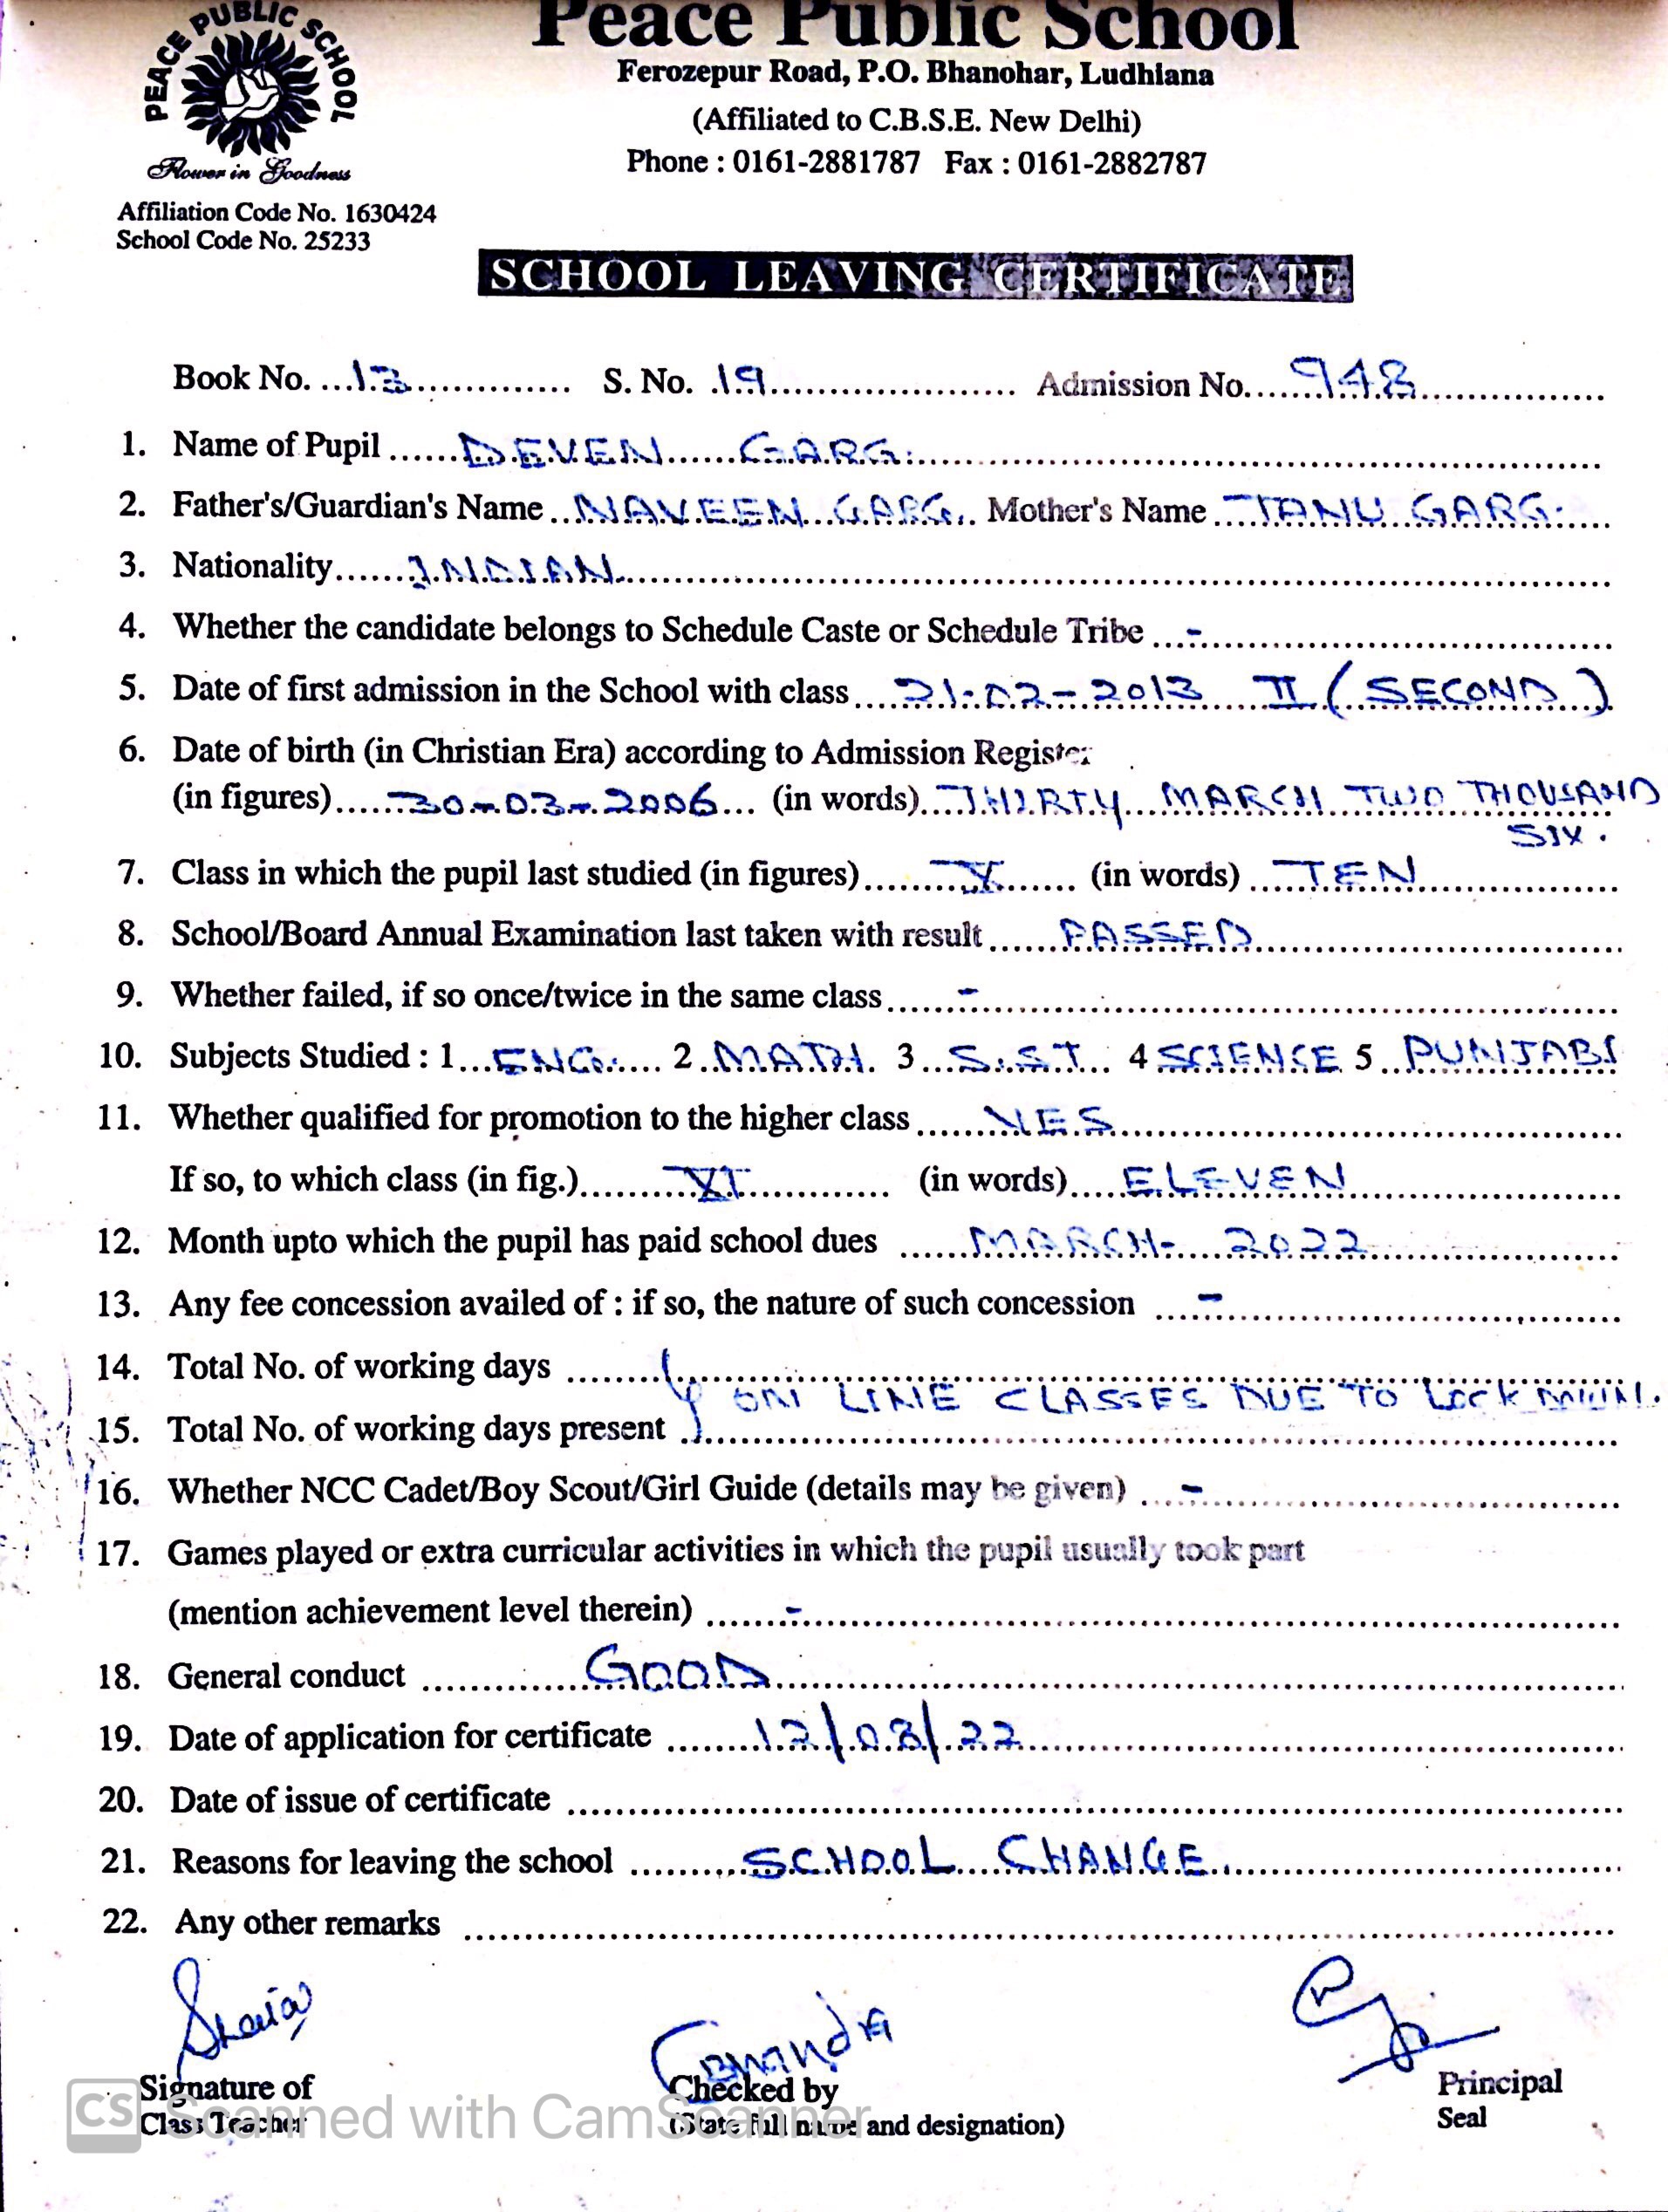 PEACE PUBLIC SCHOOL
Flower in Goodness
Peace Public School
Ferozepur Road, P.O. Bhanohar, Ludhiana
(Affiliated to C.B.S.E. New Delhi)
Phone : 0161-2881787 Fax : 0161-2882787
Affiliation Code No. 1630424
School Code No. 25233
SCHOOL LEAVING CERTIFICATE
Book No. 13 S. No. 19 Admission No. 948
1. Name of Pupil DEVEN GARG.
2. Father's/Guardian's Name NAVEEN GARG. Mother's Name TANU GARG.
3. Nationality INDIAN
4. Whether the candidate belongs to Schedule Caste or Schedule Tribe -
5. Date of first admission in the School with class 21-02-2013 II (SECOND)
6. Date of birth (in Christian Era) according to Admission Register
(in figures) 30-03-2006 (in words) THIRTY MARCH TWO THOUSAND
SIX.
7. Class in which the pupil last studied (in figures) X (in words) TEN
8. School/Board Annual Examination last taken with result PASSED
9. Whether failed, if so once/twice in the same class -
10. Subjects Studied : 1 ENG. 2 MATH. 3 S.S.T. 4 SCIENCE 5 PUNJABI
11. Whether qualified for promotion to the higher class YES
If so, to which class (in fig.) XI (in words) ELEVEN
12. Month upto which the pupil has paid school dues MARCH- 2022
13. Any fee concession availed of : if so, the nature of such concession -
14. Total No. of working days
ON LINE CLASSES DUE TO LOCK DOWN.
15. Total No. of working days present
16. Whether NCC Cadet/Boy Scout/Girl Guide (details may be given) -
17. Games played or extra curricular activities in which the pupil usually took part
(mention achievement level therein) -
18. General conduct GOOD
19. Date of application for certificate 12/08/22
20. Date of issue of certificate
21. Reasons for leaving the school SCHOOL CHANGE
22. Any other remarks
Signature of
Class Teacher
Checked by
(State full name and designation)
Principal
Seal
CS Scanned with CamScanner